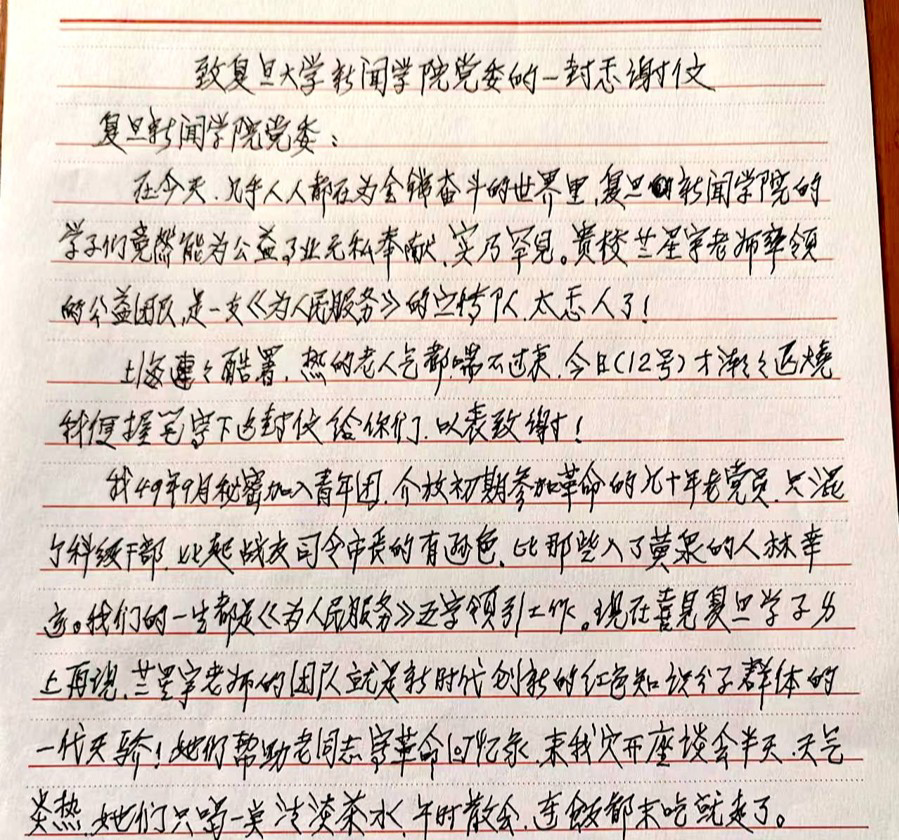 致复旦大学新闻学院党委的一封感谢信
复旦新闻学院党委：
在今天，几乎人人都在为金钱奋斗的世界里，复旦新闻学院的
学子们竟然能为公益事业无私奉献，实乃罕见。贵校兰星宇老师率领
的公益团队，是一支《为人民服务》的宣传队，太感人了！
上海连々酷署，热的老人气都喘不过来，今日(12号)才渐々退烧
我便握笔写下这封信给你们，以表致谢！
我49年9月秘密加入青年团，介放初期参加革命的九十年老党员，只混
个科级干部，比起战友司令市长的有逊色，比那些入了黄泉的人
。我们的一生都是《为人民服务》五字领引工作。现在喜见复旦学子身
上再现，兰星宇老师的团队就是新时代创新的红色知识分子群体的
一代天骄！她们帮助老同志写革命回忆录，来我家开座谈会半天，天气
炎热，她们只喝一点冷淡茶水，午时散会，连饭都未吃就走了。